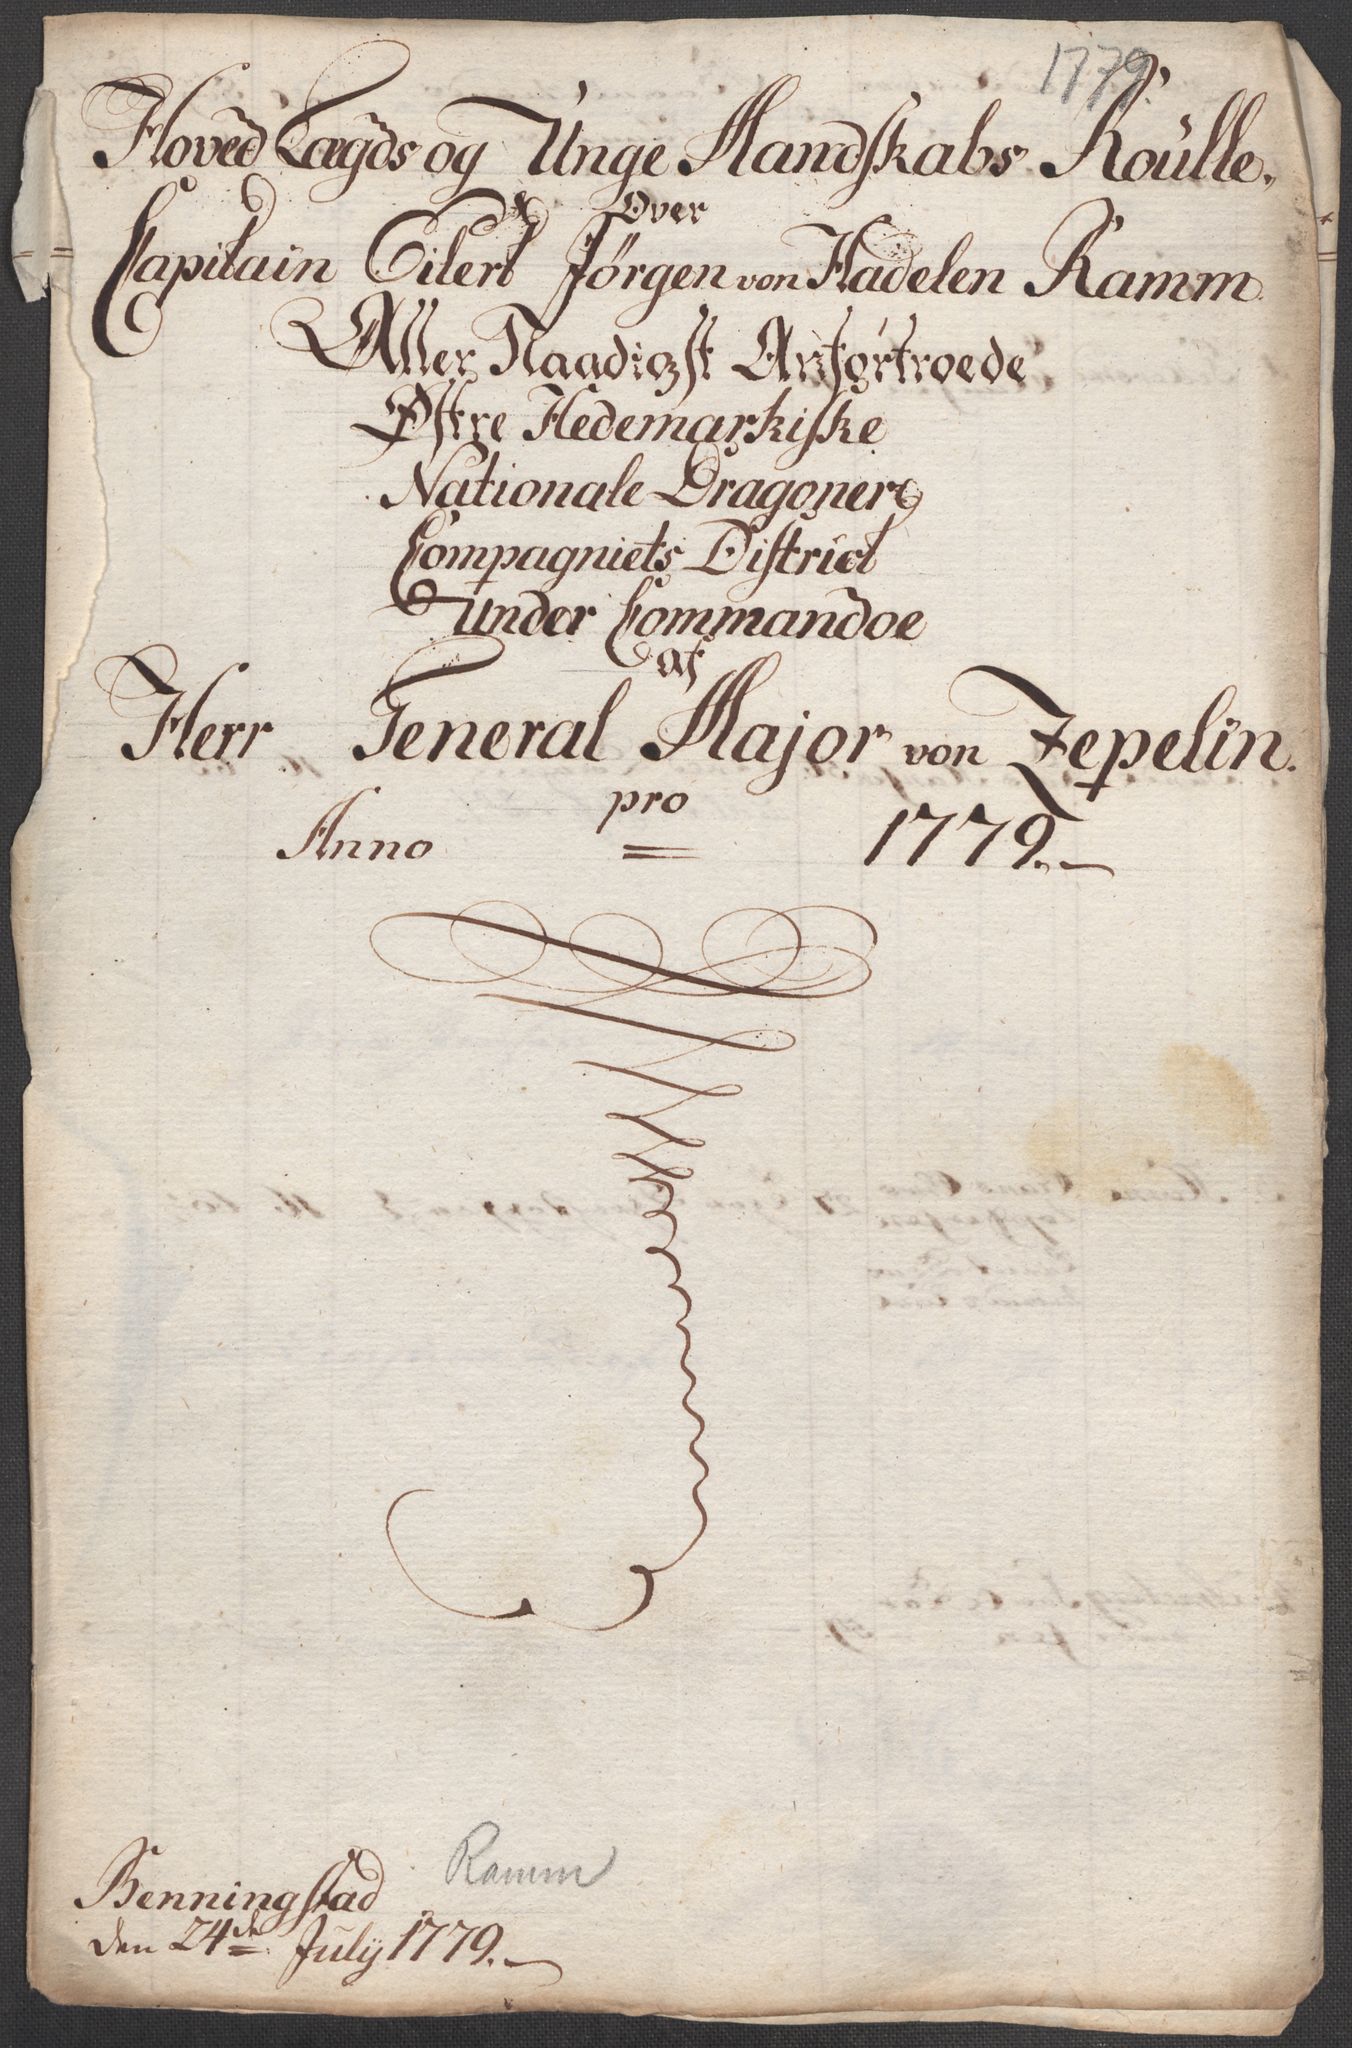 1779.
Hoved Lægds og Unge Mandskabs Roulle.
Over
Capitain Eilert Jørgen von Hadelen Ramm
Aller Naadigst Anfortroede
Østre Hedemarkiske
Nationale Dragoner
Compagniets District
Under Commandoe
af
Herr General Major von Zepelin.
pro
Anno = 1779.
Ramm
Benningstad
den 24de July 1779.